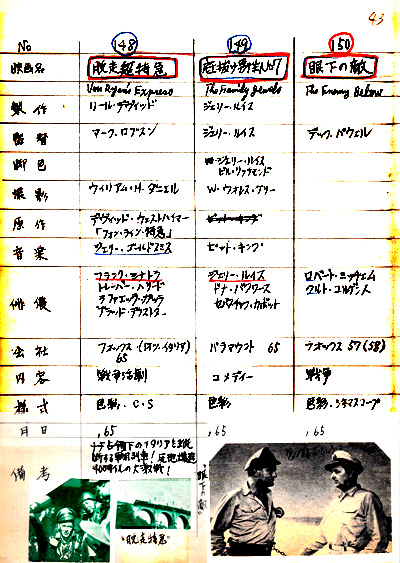 43
No 148 149 150
映画名 脱走超特急 底抜け 眼下の敵
Von Ryan's Express The Family Jewels The Enemy Below
製作 ジェリー・ルイス
監督 マーク・ロブスン ジェリー・ルイス ディック・パウエル
脚色 ジェリー・ルイス
ビル・リッチモンド
撮影 ウィリアム・H・ダニエル W・ウォレス・ケリー
原作 デヴィッド・ウェストハイマー
「フォン・ライン特急」
音楽 ジェリー・ゴールドスミス ピート・キング
俳優 フランク・シナトラ ジェリー・ルイス ロバート・ミッチャム
トレーバー・ハワード ドナ・バタワース クルト・ユルゲンス
ラファエラ・カッラ セバスチャン・カボット
ブラッド・デクスター
会社 フォックス パラマウント 65 フォックス 57 (58)
65
内容 戦争活劇 コメディー 戦争
様式 色彩・C・S 色彩 色彩・シネマスコープ
月日 ,65 ,65 ,65
備考
"脱走特急"
"眼下の敵"